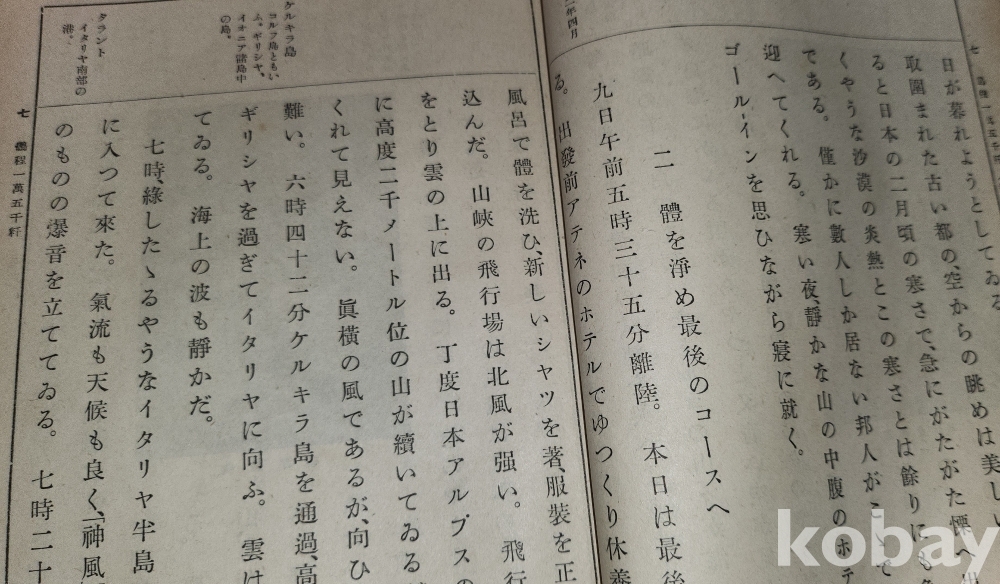 二年四月
七
日が暮れようとしてゐる
取圍まれた古い都の、空からの眺めは美しい
ると日本の二月頃の寒さで、急にがたがた慄へ出
くやうな沙漠の炎熱とこの寒さとは餘りにも
である。 僅かに數人しか居ない邦人が
迎へてくれる。 寒い夜、靜かな山の中腹のホテ
ゴールインを思ひながら寢に就く。
二 體を淨め最後のコースへ
九日午前五時三十五分離陸。 本日は最後
る。 出發前アテネのホテルでゆつくり休養
風呂で體を洗ひ、新しいシャツを著、服裝を正
込んだ。 山峽の飛行場は北風が强い。 飛行
をとり雲の上に出る。 丁度日本アルプスの
に高度二千メートル位の山が續いてゐる
くれて見えない。 眞橫の風であるが、向ひ
難い。 六時四十二分ケルキラ島を通過、高
ギリシヤを過ぎてイタリヤに向ふ。 雲は
てゐる。 海上の波も靜かだ。
七時綠したゝるやうなイタリヤ半島
に入つて來た。 氣流も天候も良く、「神風
のものの爆音を立ててゐる。 七時二十
ケルキラ島
コルフ島ともい
ふ。ギリシヤ、
イオニア諸島中
の島。
タラント
イタリヤ南部の
港。
七 翔程一萬五千粁
kobay